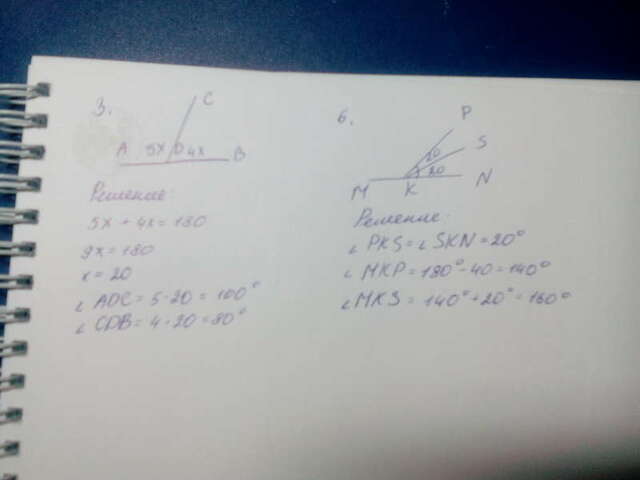 3.
C
A 5x D 4x B
Решение:
5x + 4x = 180
9x = 180
x = 20
∠ ADC = 5 · 20 = 100°
∠ CDB = 4 · 20 = 80°
6.
P
S
20
20
M K N
Решение:
∠ PKS = ∠ SKN = 20°
∠ MKP = 180° - 40 = 140°
∠ MKS = 140° + 20° = 160°